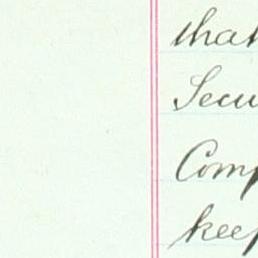 that
Secu
Comp
keep